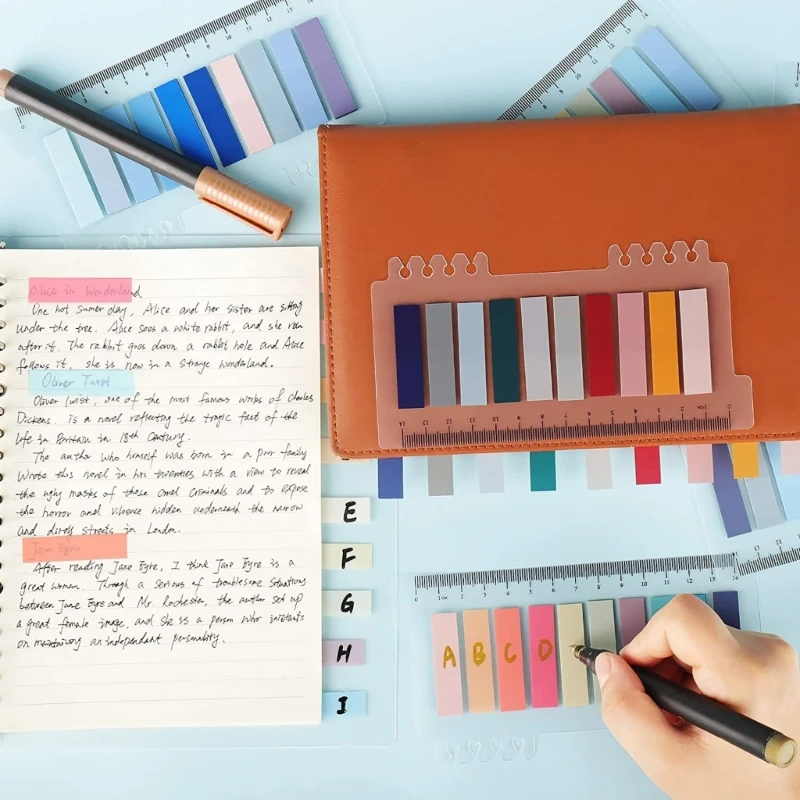 Alice in Wonderland
One hot sumer day, Alice and her sister are sitting
under the tree. Alice sees a white rabbit, and she run
after it. The rabbit goes down a rabbit hole and Alice
follows it, she is now in a strange wonderland.
Oliver Twist
Oliver Twist, one of the most famous works of Charles
Dickens. Is a novel reflecting the tragic fact of the
life in Britain in 18th Century.
The author who himself was born in a poor family
Wrote this novel in his twenties with a view to reveal
the ugly masks of those cruel criminals and to expose
the horror and viloence hidden underneath the narrow
and streets in London.
Jane Eyre
After reading Jane Eyre, I think Jane Eyre is a
great woman. Through a Serious of troublesome situations
between Jane Eyre and Mr. Rochester, the author set up
a great female image, and she is a person who
on an independant personality.
E
F
G
H
I
A B C D